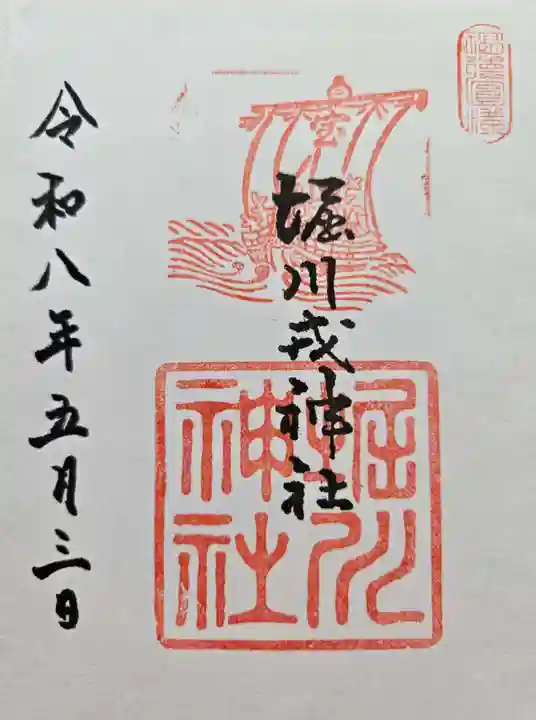 堀川戎神社
宝
堀川
神社
令和八年五月三日